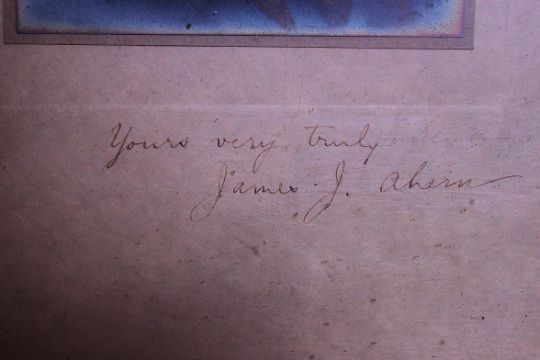 Yours very truly
James J. Ahern